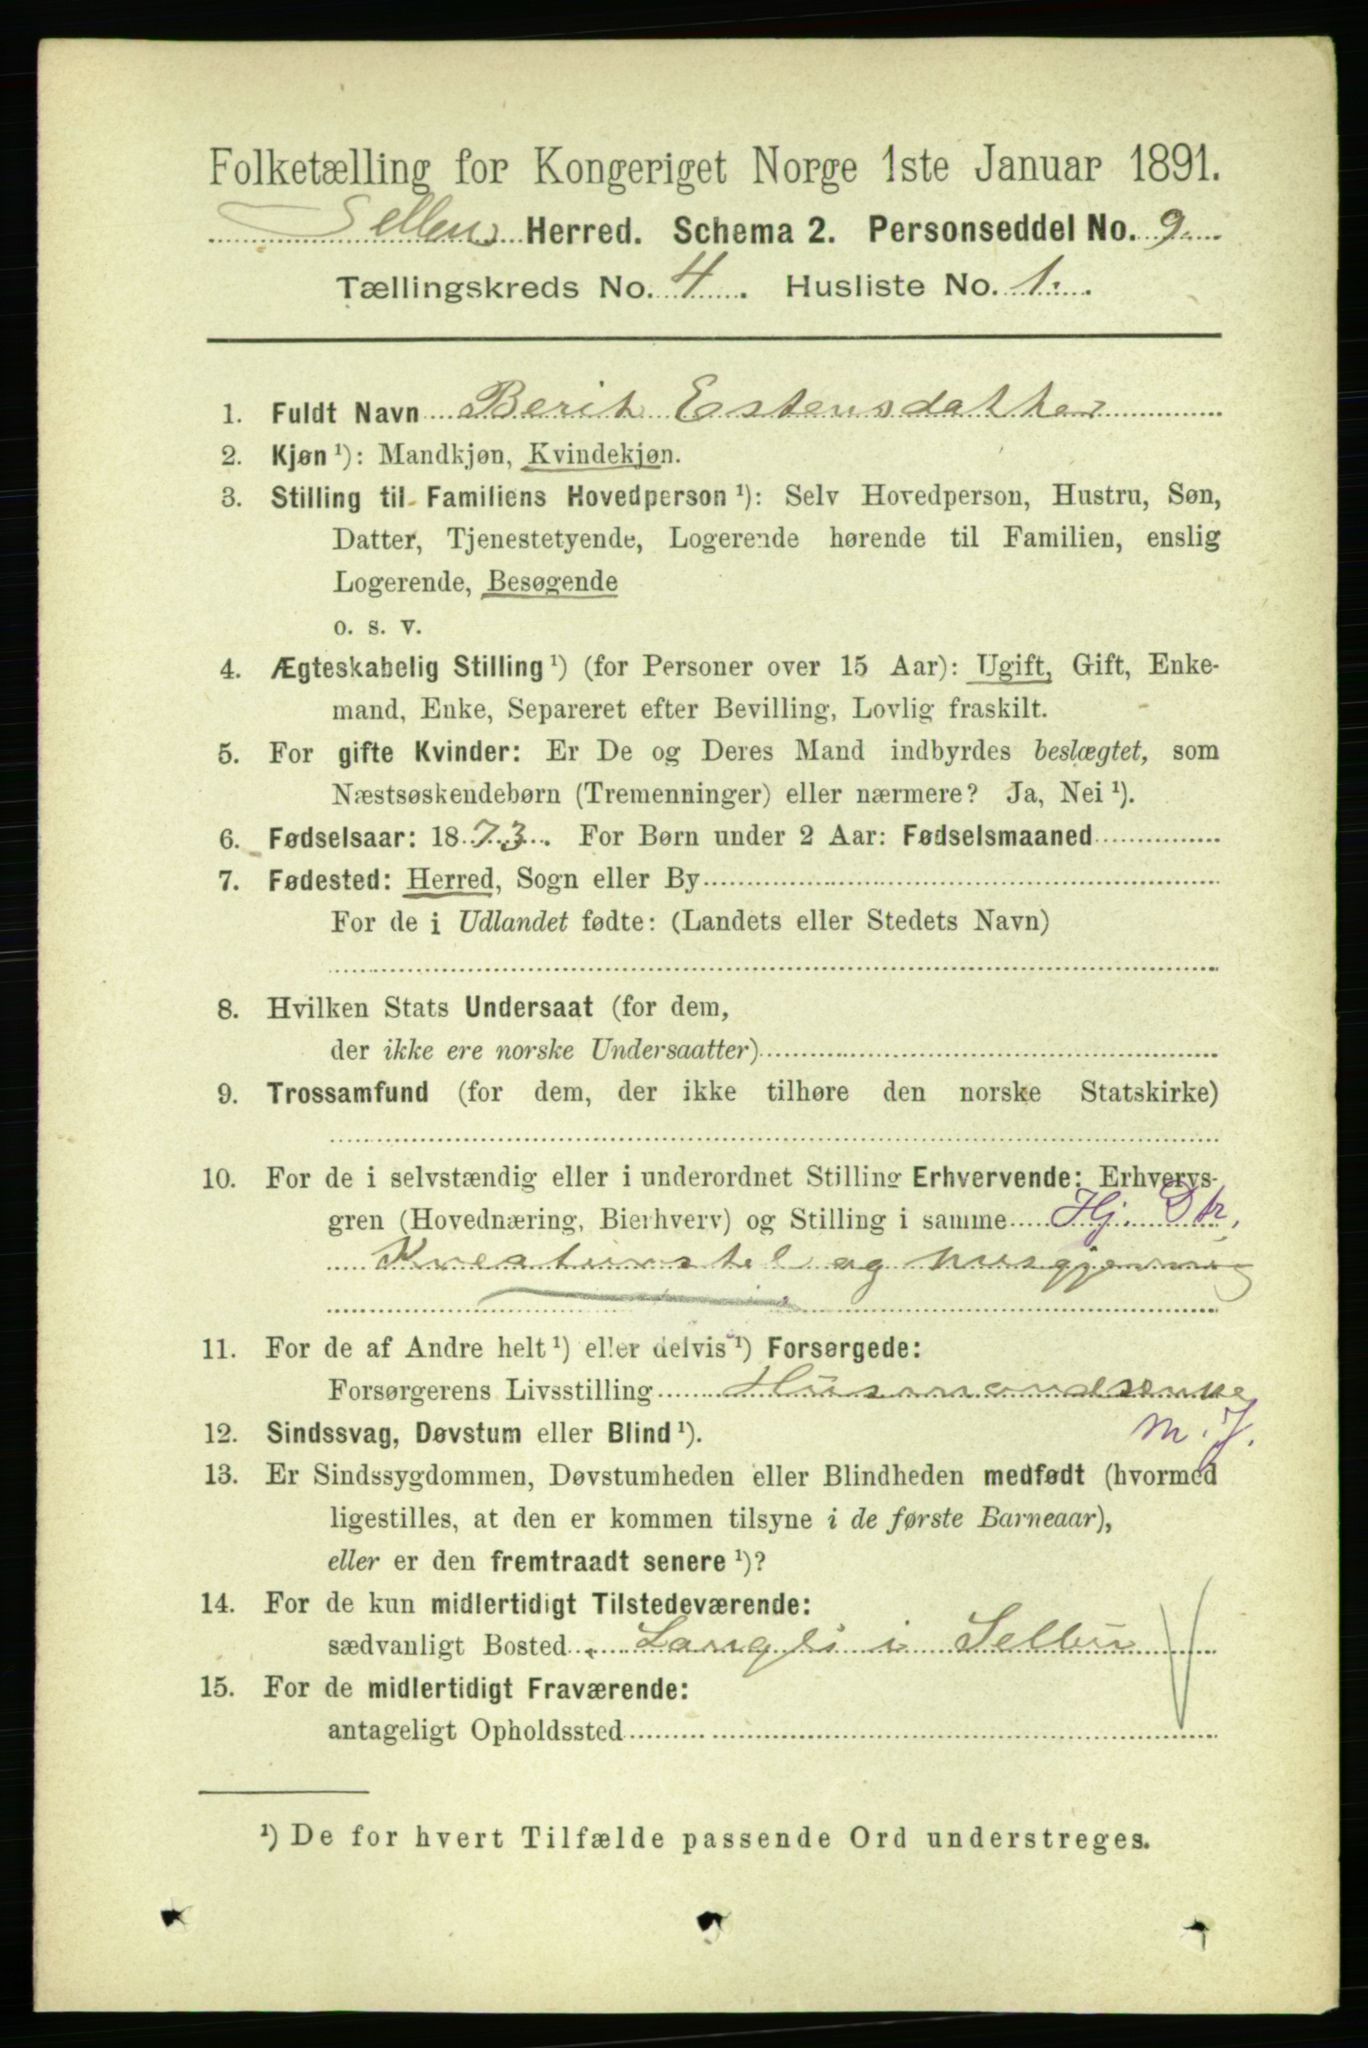 Folketælling for Kongeriget Norge 1ste Januar 1891.
Selbu Herred. Schema 2. Personseddel No. 9.
Tællingskreds No. 4. Husliste No. 1.
1. Fuldt Navn Berit Estensdatter
2. Kjøn ¹): Mandkjøn, Kvindekjøn.
3. Stilling til Familiens Hovedperson ¹): Selv Hovedperson, Hustru, Søn,
Datter, Tjenestetyende, Logerende hørende til Familien, enslig
Logerende, Besøgende
o. s. v.
4. Ægteskabelig Stilling ¹) (for Personer over 15 Aar): Ugift, Gift, Enke-
mand, Enke, Separeret efter Bevilling, Lovlig fraskilt.
5. For gifte Kvinder: Er De og Deres Mand indbyrdes beslægtet, som
Næstsøskendebørn (Tremenninger) eller nærmere? Ja, Nei ¹).
6. Fødselsaar: 1873. For Børn under 2 Aar: Fødselsmaaned
7. Fødested: Herred, Sogn eller By
For de i Udlandet fødte: (Landets eller Stedets Navn)
8. Hvilken Stats Undersaat (for dem,
der ikke ere norske Undersaatter)
9. Trossamfund (for dem, der ikke tilhøre den norske Statskirke)
10. For de i selvstændig eller i underordnet Stilling Erhvervende: Erhvervs-
gren (Hovednæring, Bierhverv) og Stilling i samme Hj. Dtr.
Kreaturstel og husgjerning
11. For de af Andre helt ¹) eller delvis ¹) Forsørgede:
Forsørgerens Livsstilling Husmandsenke
12. Sindssvag, Døvstum eller Blind ¹). m. J.
13. Er Sindssygdommen, Døvstumheden eller Blindheden medfødt (hvormed
ligestilles, at den er kommen tilsyne i de første Barneaar),
eller er den fremtraadt senere ¹)?
14. For de kun midlertidigt Tilstedeværende:
sædvanligt Bosted Langli i Selbu
15. For de midlertidigt Fraværende:
antageligt Opholdssted
¹) De for hvert Tilfælde passende Ord understreges.